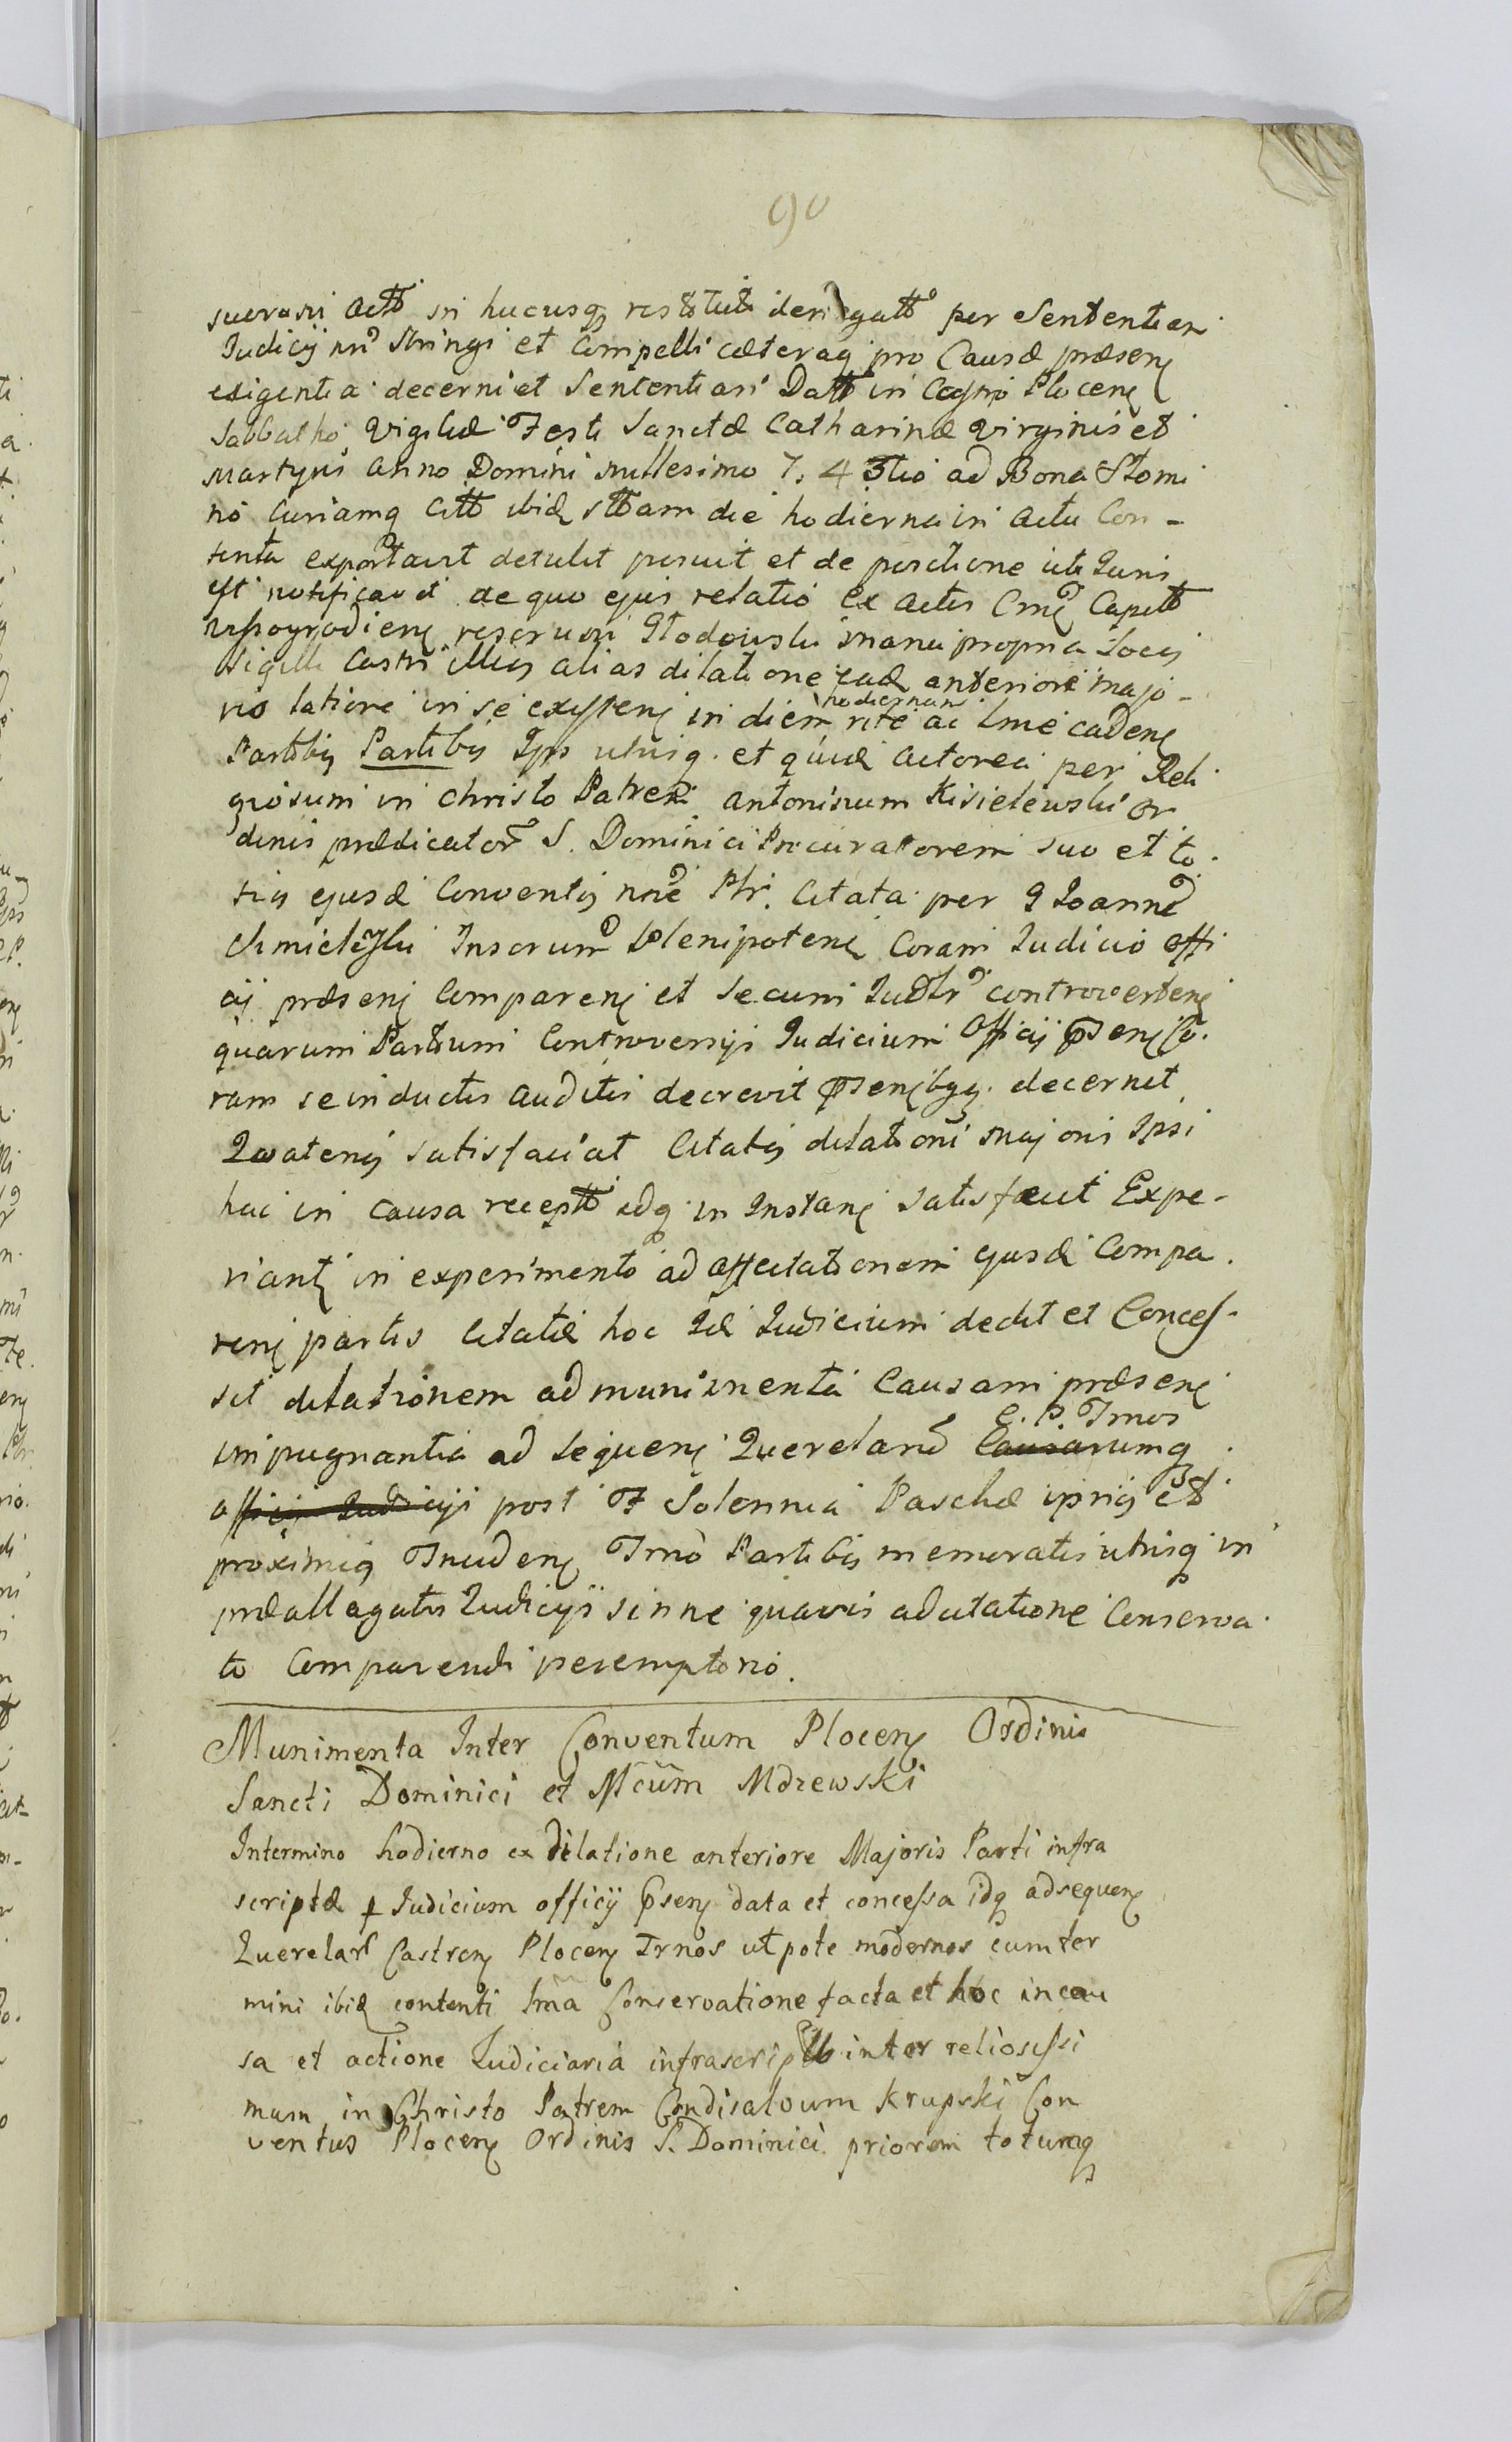 90
suorum Actt in hucusq restituti denegatt per Sententiam
Judicij nri Stringi et Compelli cæteraq pro Causæ præsens
exigentia decerni et Sententiari Datt in Castro Plocens
Sabbatho Vigiliæ Festi Sanctæ Catharinæ Virginis et
Martyris Anno Domini millesimo 7. 43tio ad Bona Stomi
no Curiamq Citt ibidem die hodierna in Actu Con-
tenta exportavit detulit posuit et de positione uti Juris
est notificavit de quo ejus relatio ex Actis Capitt
Wyszogrodiens manu propria Locus
Sigilli Castri illius alias dilatione eadem anteriore majo-
ris latiore in se existens in diem hodiernum rite ac lme cadens
Partibus Partibus Ipsis utrisq. et quidem Actorea per Reli
giosum in Christo Patrem Antoninum Kisielewski Or
dinis prædicator S. Dominici Procuratorem suo et to.
tius ejusd Conventus nne Citata per G Joannem
Chmielewski Insorum Plenipotens Coram Judicio offi
cij præsens Comparens et Secum Judlr controvertens
quarum Partium Controversijs Judicium Officij psens Co.
ram se inductis auditis decrevit psensibusq. decernit
Quatenus satisfaciat Citatus dilationi majori Ipsi
hac in causa recept idq in Instans satisfecit Expe-
riant in experimento ad affectationem ejusd Compa.
rens partis Citatæ hoc Id Judicium dedit et Conces-
sit dilationem ad munimenta Causam præsens
C. P. Trnos
impugnantia ad sequens Querelard Causarumq
officij Judicij post F Solennia Paschæ ipsius et
proximius Incidens Trno Partibus memoratis utrisq in
præallegatis Judicijs sinne quavis adcitatione Conserva.
to Comparendi peremptorio.
Munimenta Inter Conventum Plocens Ordinis
Sancti Dominici et Mcum Mdzewski
Intermino hodierno ex dilatione anteriore Majoris Parti infra
scriptæ p Judicium officij psens data et concessa idq adsequens
Querelarl Castrens Plocens Trnos utpote modernos cum ter
mini ibid contenti lma Conservatione facta et hoc in cau
sa et actione Judiciaria infrascriptt inter reliosissi
mum in Christo Patrem Condisalvum Krupski Con
ventus Plocens Ordinis S. Dominici priorem totumq